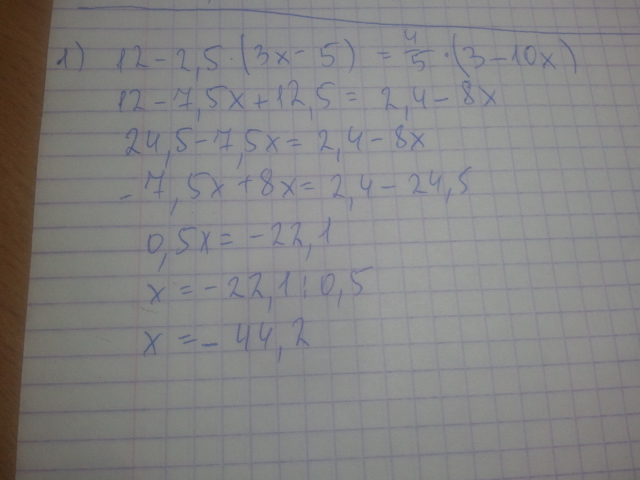 1) 12 - 2,5 · (3x - 5) = 4/5 · (3 - 10x)
12 - 7,5x + 12,5 = 2,4 - 8x
24,5 - 7,5x = 2,4 - 8x
- 7,5x + 8x = 2,4 - 24,5
0,5x = - 22,1
x = - 22,1 : 0,5
x = - 44,2